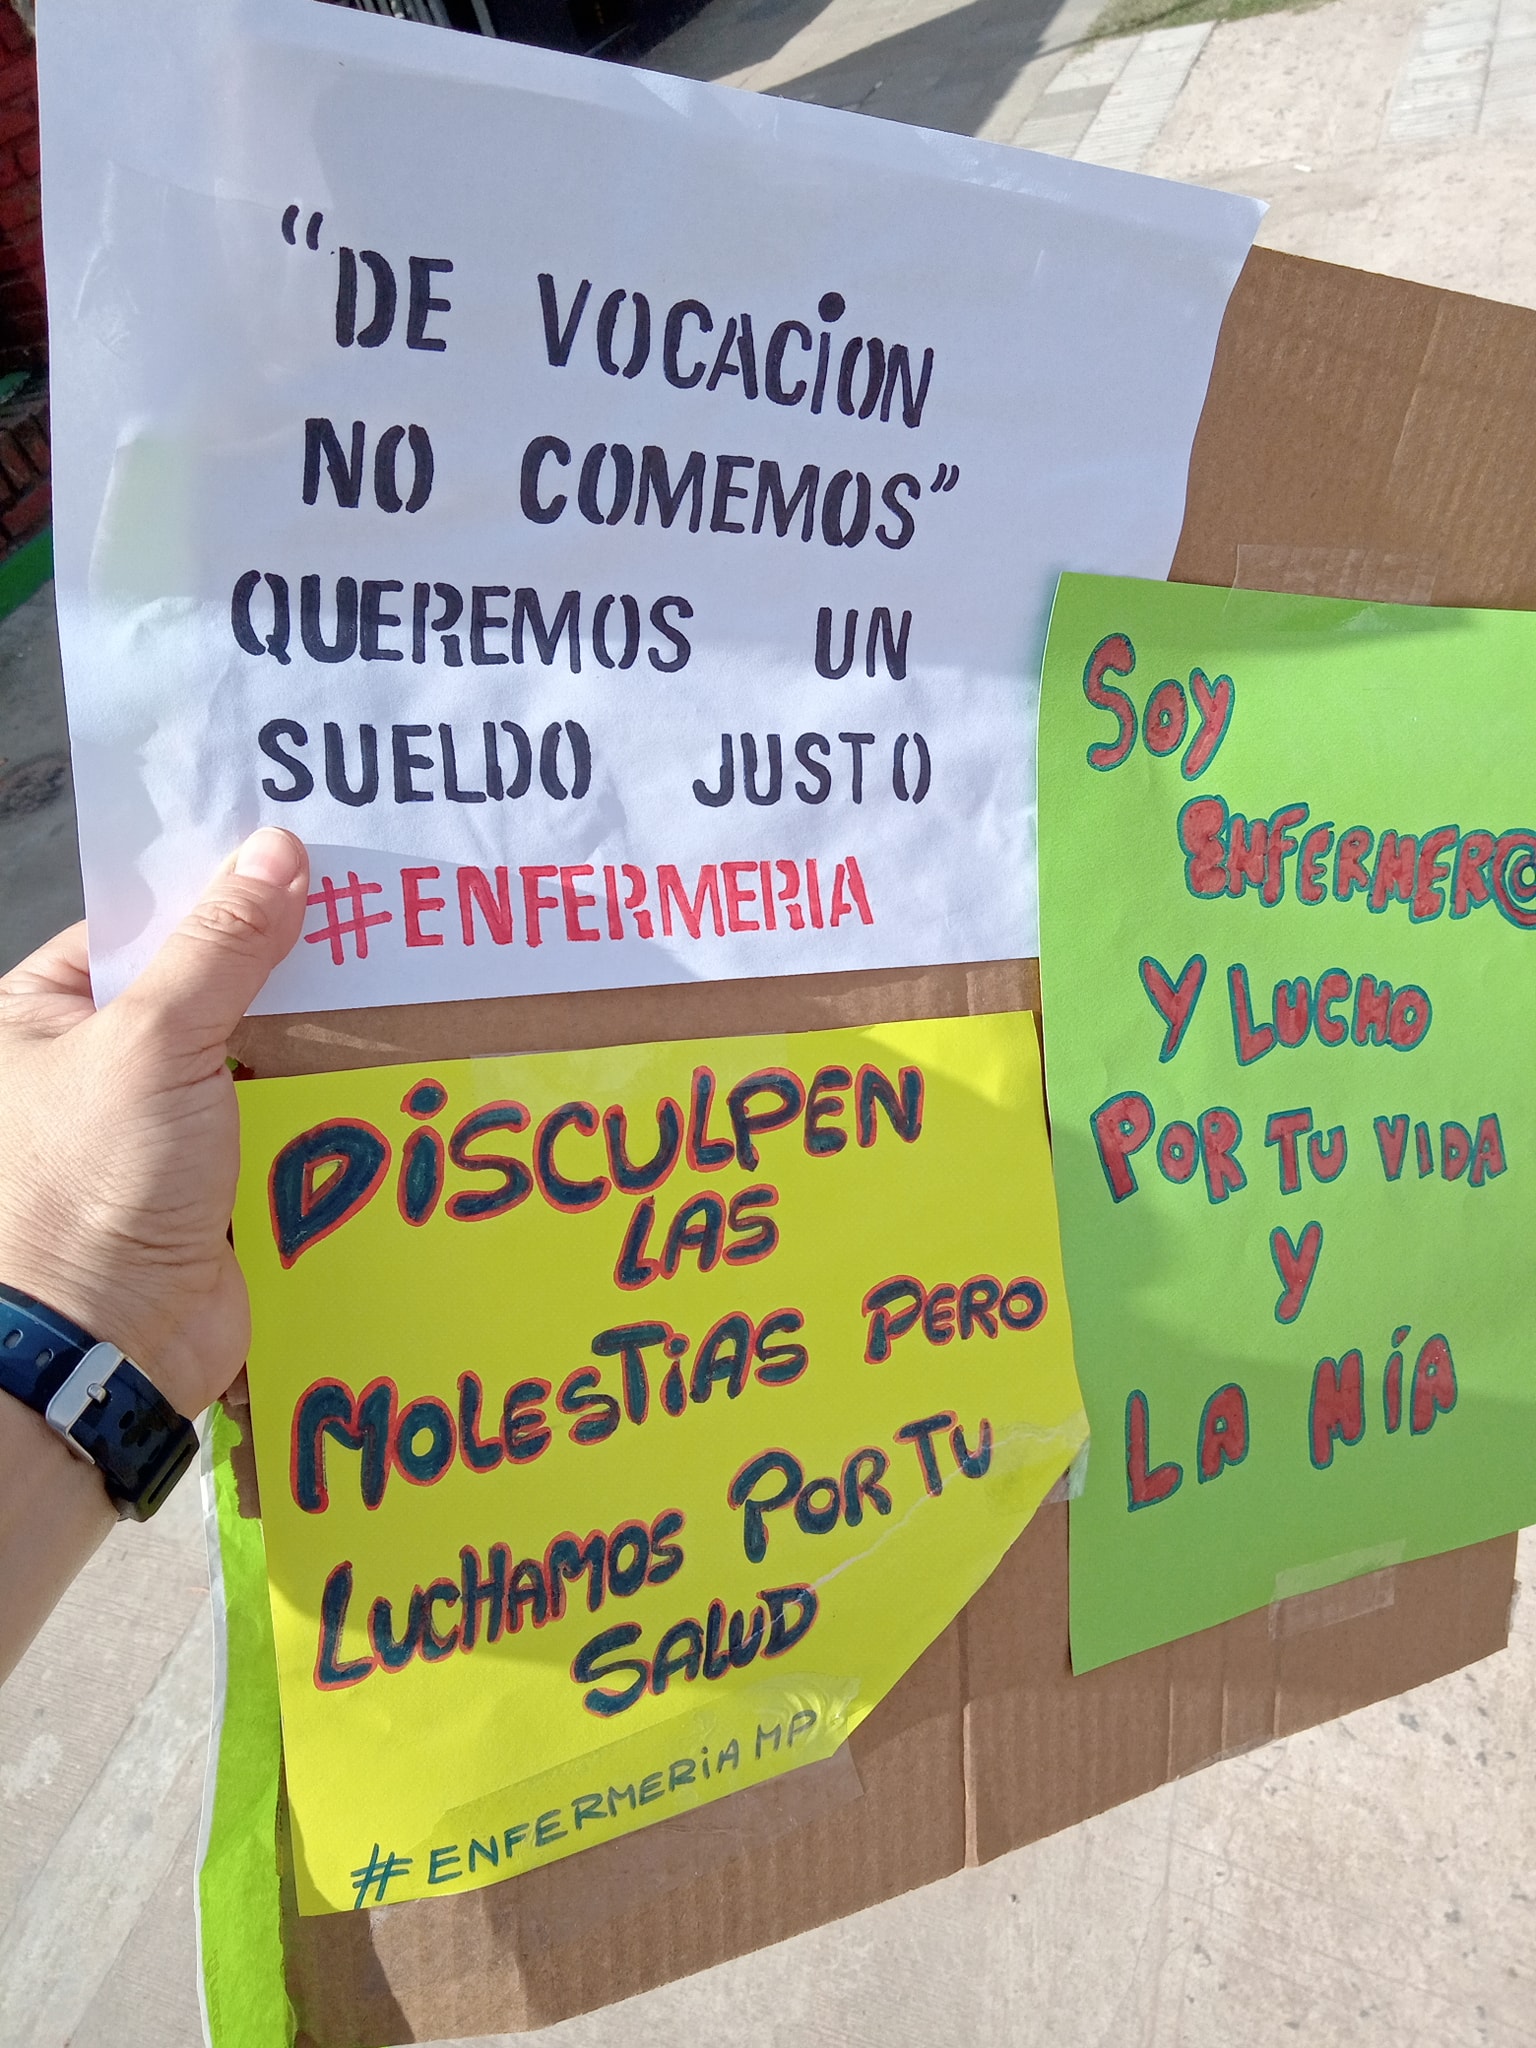 “DE VOCACiON
NO COMEMOS”
QUEREMOS UN
SUELDO JUSTO
#ENFERMERIA
DiSCULPEN
LAS
MOLESTiAS PERO
LUCHAMOS POR TU
SALUD
#ENFERMERiA MP
SOY
ENFERMER@
Y LUCHO
POR TU VIDA
Y
LA MÍA